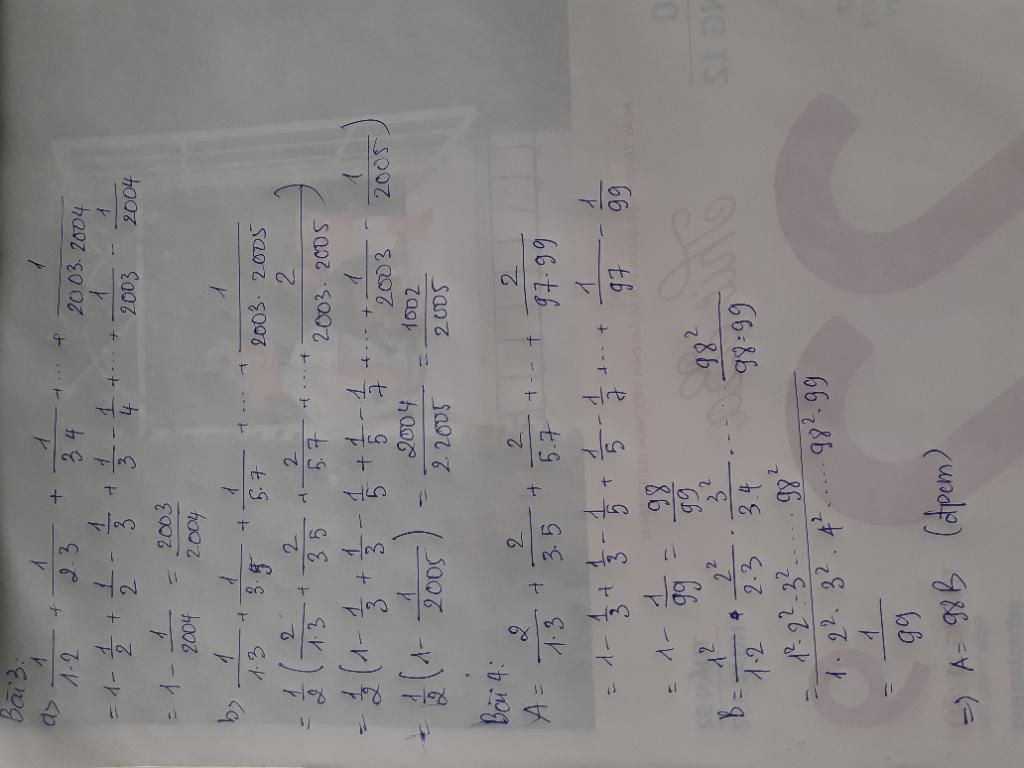 Bài 3:
a> 1/1.2 + 1/2.3 + 1/3.4 + ... + 1/2003.2004
= 1 - 1/2 + 1/2 - 1/3 + 1/3 - 1/4 + ... + 1/2003 - 1/2004
= 1 - 1/2004 = 2003/2004
b> 1/1.3 + 1/3.5 + 1/5.7 + ... + 1/2003.2005
= 1/2 (2/1.3 + 2/3.5 + 2/5.7 + ... + 2/2003.2005)
= 1/2 (1 - 1/3 + 1/3 - 1/5 + 1/5 - 1/7 + ... + 1/2003 - 1/2005)
= 1/2 (1 - 1/2005) = 2004/2.2005 = 1002/2005
Bài 4:
A = 2/1.3 + 2/3.5 + 2/5.7 + ... + 2/97.99
= 1 - 1/3 + 1/3 - 1/5 + 1/5 - 1/7 + ... + 1/97 - 1/99
= 1 - 1/99 = 98/99
B = 1²/1.2 . 2²/2.3 . 3²/3.4 ..... 98²/98.99
= 1².2².3²......98²/1.2².3².4²......98².99
= 1/99
=> A = 98B (đpcm)